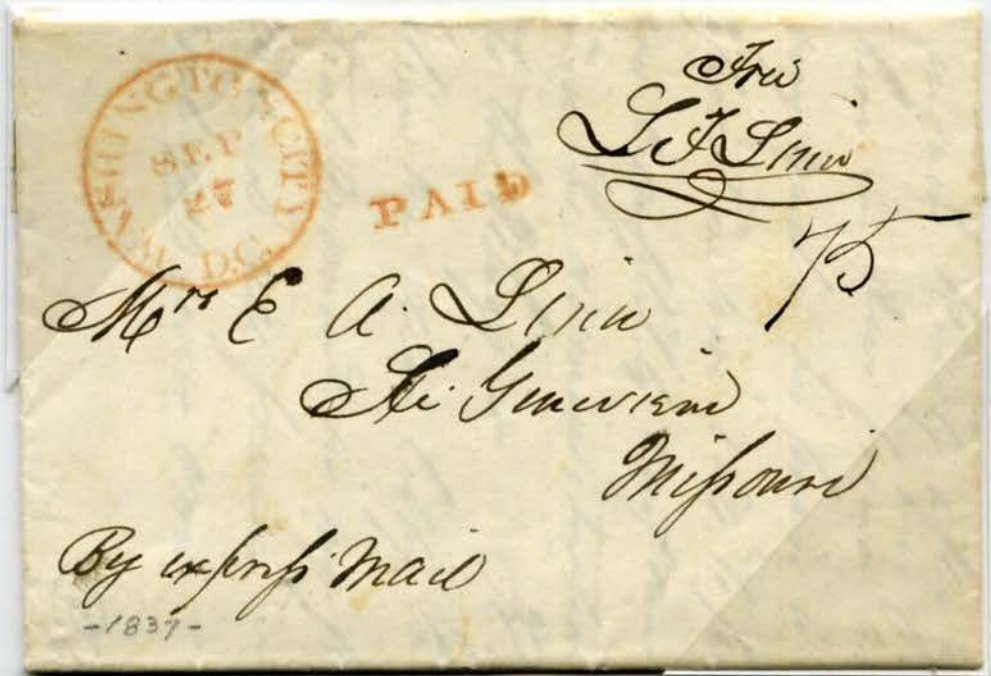 WASHINGTON CITY
D.C.
SEP
27
PAID
Free
L F Linn
75
Mrs E A. Linn
Ste Genevieve
Missouri
By express Mail
-1837-